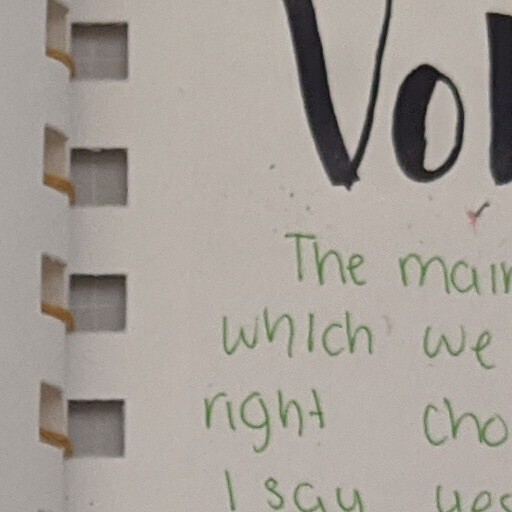 Vol
The main
which we
right cho
I say yes